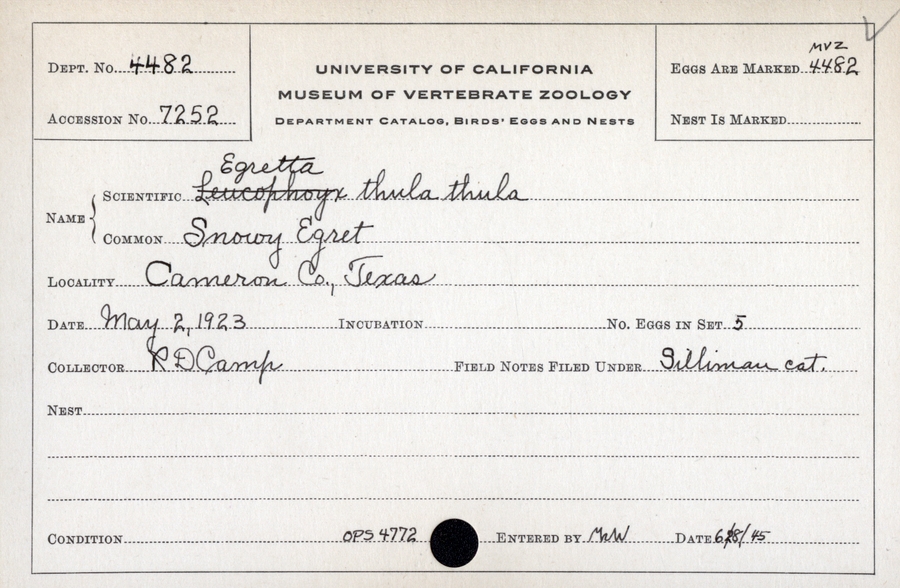 MVZ
Dept. No. 4482
UNIVERSITY OF CALIFORNIA
Eggs Are Marked 4482
MUSEUM OF VERTEBRATE ZOOLOGY
Accession No. 7252
Department Catalog, Birds' Eggs and Nests
Nest Is Marked
Egretta
Name { Scientific Leucophoyx thula thula
Common Snowy Egret
Locality Cameron Co., Texas
Date May 2, 1923 Incubation No. Eggs in Set 5
Collector R D Camp Field Notes Filed Under Silliman cat.
Nest
Condition OPS 4772 Entered by Date 6/28/45